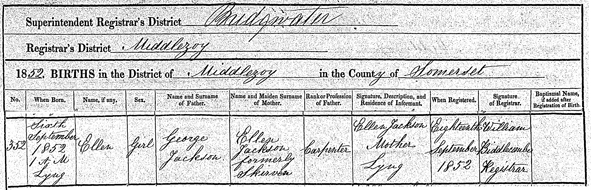 Superintendent Registrar's District Bridgwater
Registrar's District Middlezoy
1852. BIRTHS in the District of Middlezoy in the County of Somerset
No. When Born. Name, if any. Sex. Name and Surname of Father. Name and Maiden Surname of Mother. Rank or Profession of Father. Signature, Description, and Residence of Informant. When Registered. Signature of Registrar. Baptismal Name, if added after Registration of Birth.
352 Sixth September 1852 1 A M Lyng Ellen Girl George Jackson Ellen Jackson formerly Skerven Carpenter Ellen Jackson Mother Lyng Eighteenth September 1852 William Biddlecombe Registrar